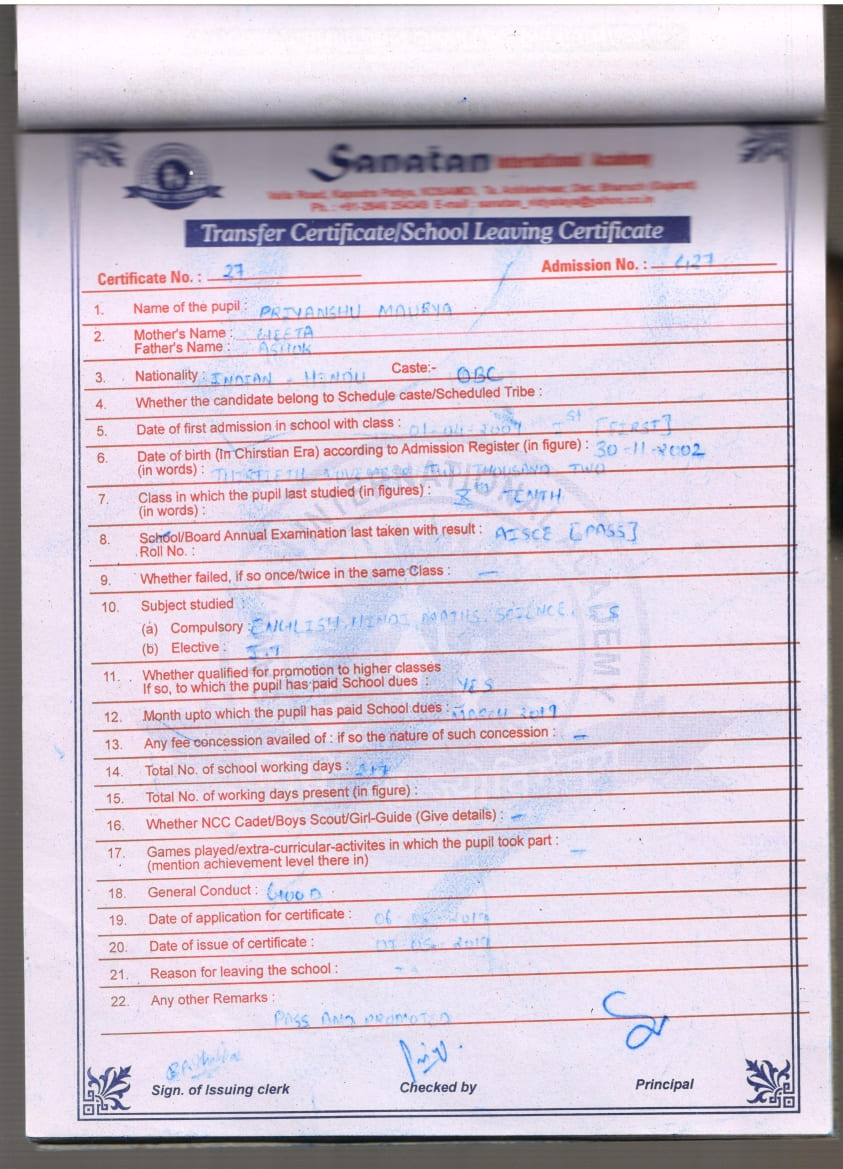 Sanatan International Academy
Ph. : +91-2646 E-mail : sanatan_vidyalaya@yahoo.co.in
Transfer Certificate/School Leaving Certificate
Certificate No. : 27
Admission No. : 427
1. Name of the pupil : PRIYANSHU MAURYA
2. Mother's Name : GEETA
Father's Name : ASHOK
3. Nationality : INDIAN - HINDU Caste:- OBC
4. Whether the candidate belong to Schedule caste/Scheduled Tribe :
5. Date of first admission in school with class : 01-04-2009 Ist [FIRST]
6. Date of birth (In Chirstian Era) according to Admission Register (in figure) : 30-11-2002
(in words) : THIRTIETH NOVEMBER TWO THOUSAND TWO
7. Class in which the pupil last studied (in figures) : Xth TENTH
(in words) :
8. School/Board Annual Examination last taken with result : AISCE [PASS]
Roll No. :
9. Whether failed, if so once/twice in the same Class : —
10. Subject studied :
(a) Compulsory : ENGLISH, HINDI, MATHS, SCIENCE, S
(b) Elective : I.T
11. Whether qualified for promotion to higher classes
If so, to which the pupil has paid School dues : YES
12. Month upto which the pupil has paid School dues : MARCH 2019
13. Any fee concession availed of : if so the nature of such concession : —
14. Total No. of school working days :
15. Total No. of working days present (in figure) :
16. Whether NCC Cadet/Boys Scout/Girl-Guide (Give details) : —
17. Games played/extra-curricular-activites in which the pupil took part : —
(mention achievement level there in)
18. General Conduct : GOOD
19. Date of application for certificate : 06 2019
20. Date of issue of certificate : 05-2019
21. Reason for leaving the school :
22. Any other Remarks :
PASS AND PROMOTED
Sign. of Issuing clerk Checked by Principal
INTERNATIONAL ACADEMY